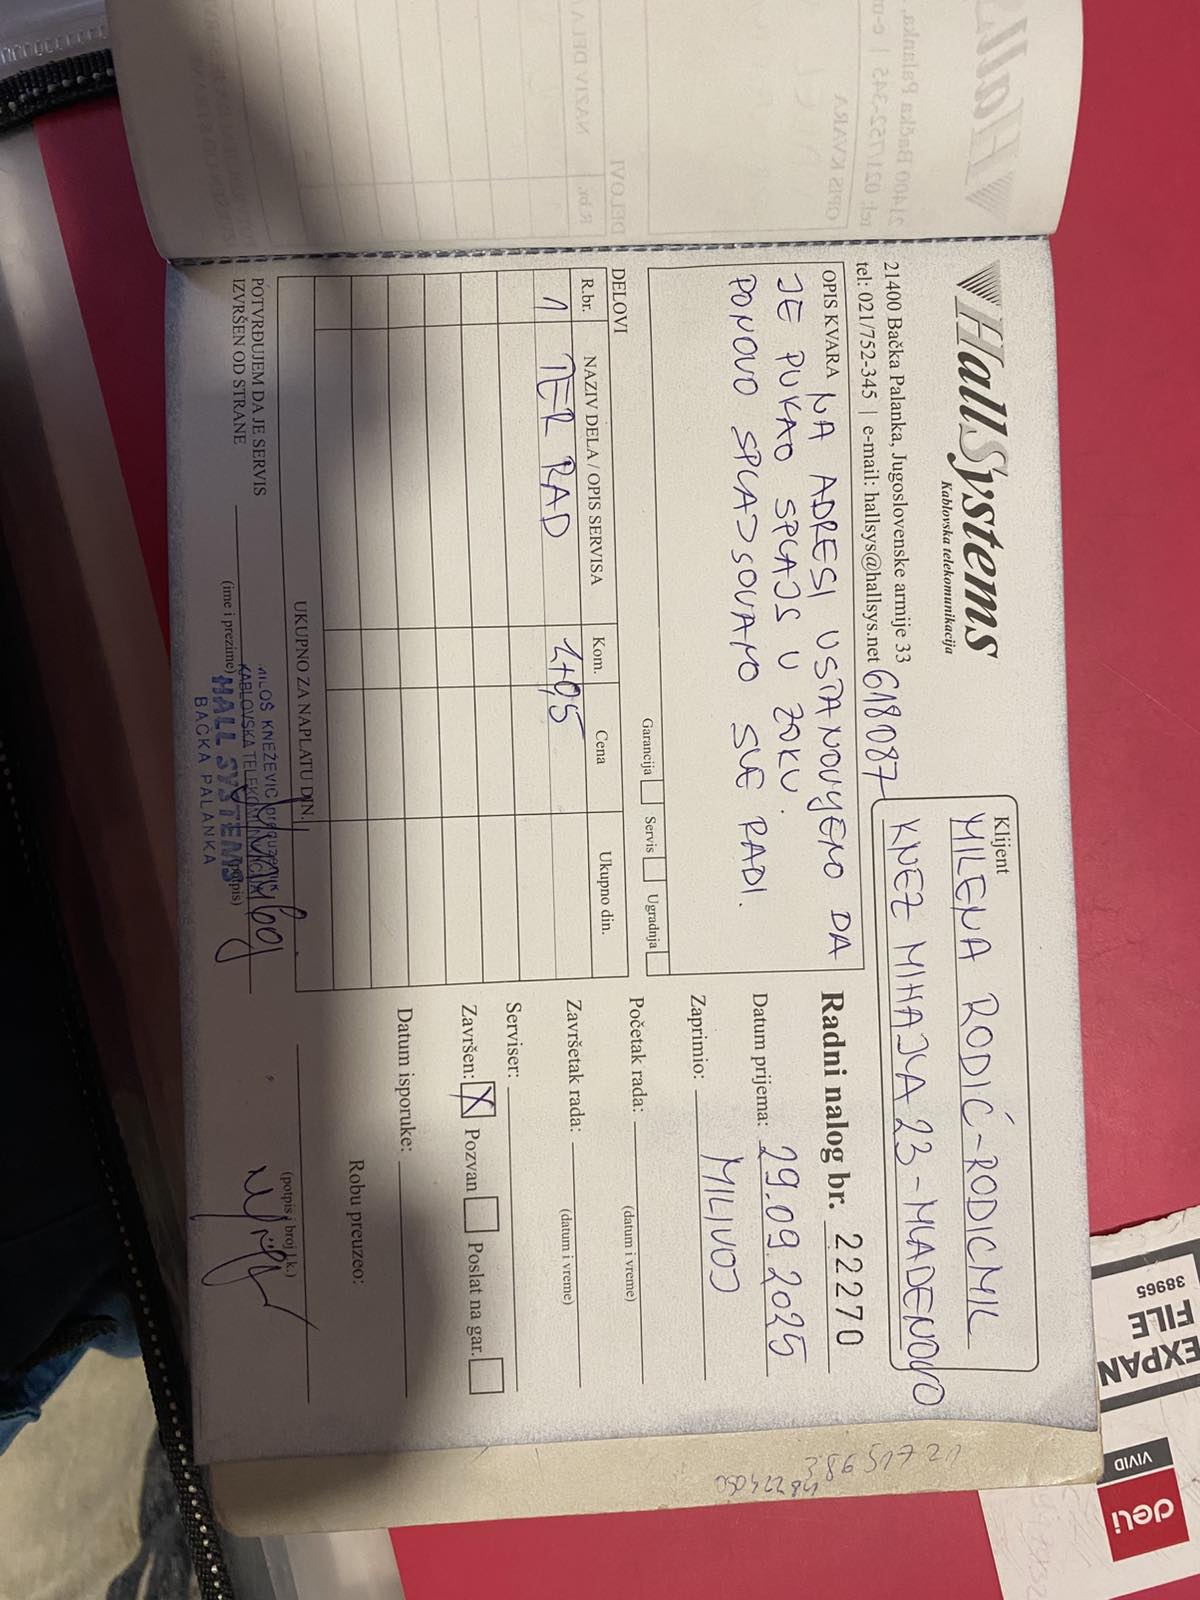 HallSystems
Kablovska telekomunikacija
21400 Bačka Palanka, Jugoslovenske armije 33
tel: 021/752-345 | e-mail: hallsys@hallsys.net 618087
Klijent
MILENA RODIĆ-RODICMIL
KNEZ MIHAJLA 23-MLADENOVO
OPIS KVARA NA ADRESI USTANOVLJENO DA
JE PUKAO SPLAJS U ZOKU.
PONOVO SPLAJSOVANO SVE RADI.
Garancija Servis Ugradnja
Radni nalog br. 22270
Datum prijema: 29.09.2025
Zaprimio: MILIVOJ
Početak rada:
(datum i vreme)
Završetak rada:
(datum i vreme)
Serviser:
Završen: X Pozvan Poslat na gar.
Datum isporuke:
Robu preuzeo:
(potpis i broj l.k.)
DELOVI
R.br. NAZIV DELA / OPIS SERVISA Kom. Cena Ukupno din.
1 TER RAD 1+0,5
UKUPNO ZA NAPLATU DIN.
POTVRĐUJEM DA JE SERVIS
IZVRŠEN OD STRANE
(ime i prezime) (potpis)
MILOŠ KNEŽEVIĆ preduzetnik
KABLOVSKA TELEKOMUNIKACIJA
HALL SYSTEMS
BAČKA PALANKA
38965
EXPAN
FILE
VIVID
deli